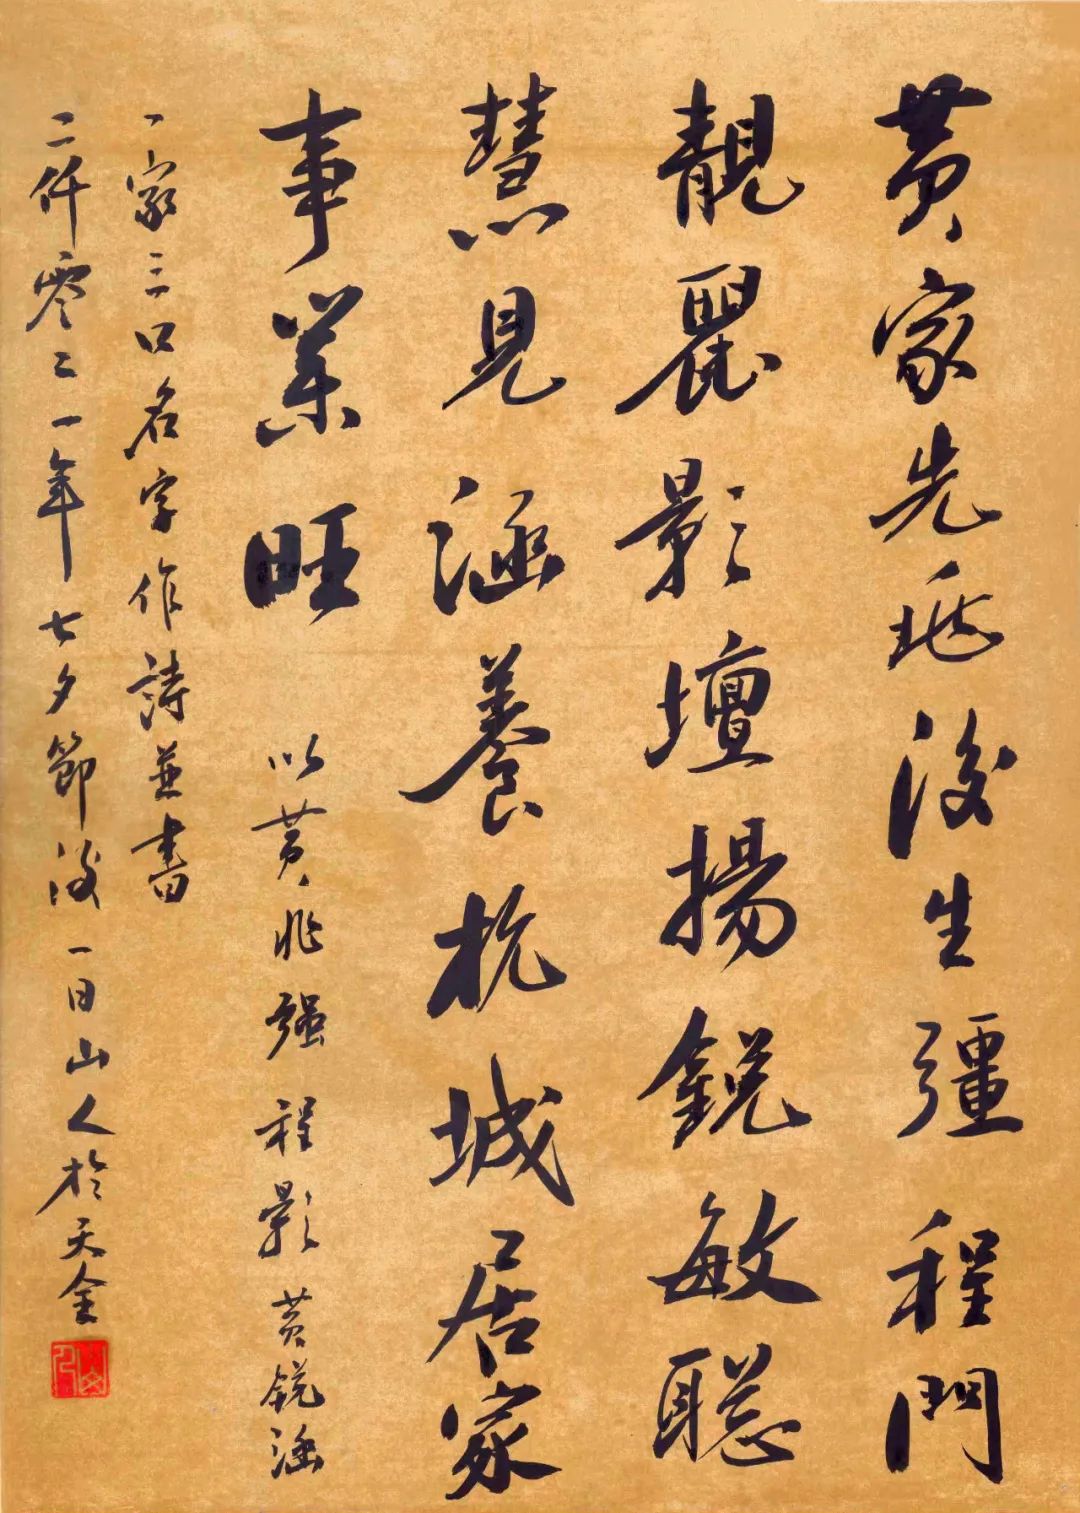 黄家先兆後生彊程門
靚麗影壇揚鋭敏聰
慧見涵養杭城居家
事業旺 以黄兆强 程影 黄鋭涵
一家三口名字作詩並書
二仟零二一年七夕節後一日山人於天全